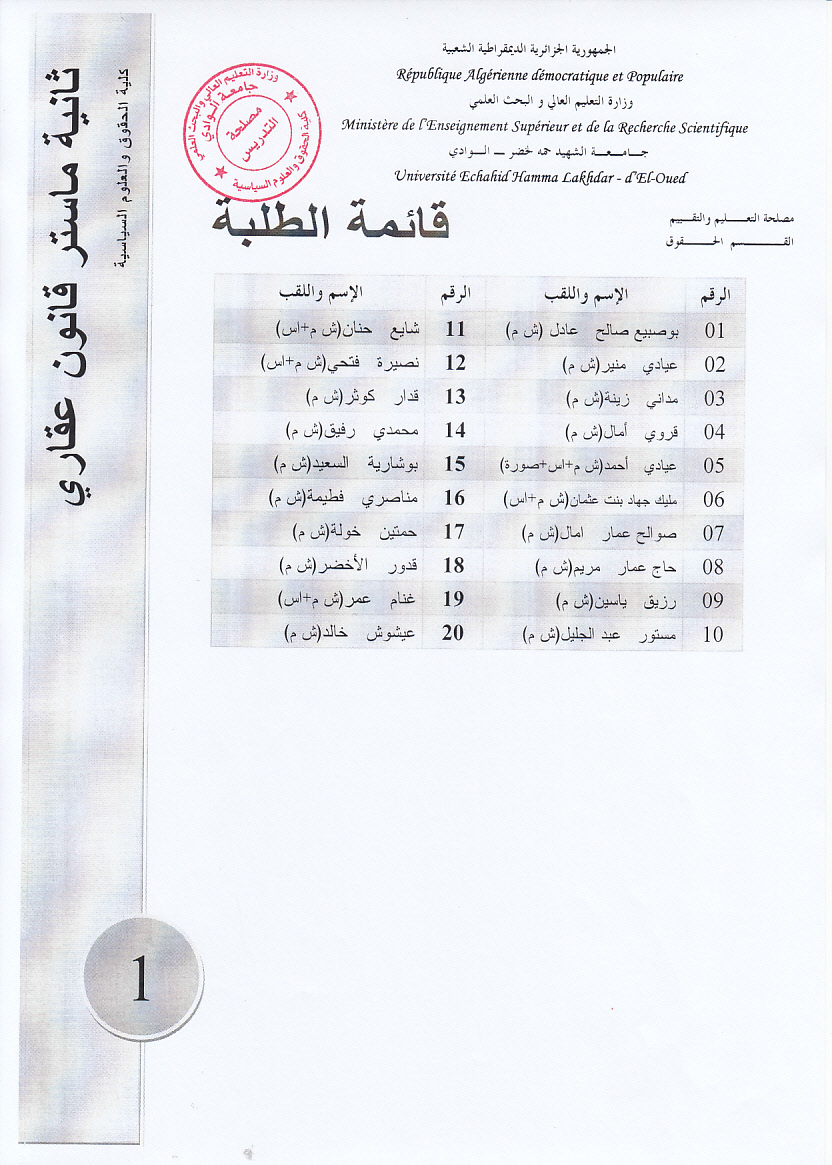 الجمهورية الجزائرية الديمقراطية الشعبية
République Algérienne démocratique et Populaire
وزارة التعليم العالي و البحث العلمي
Ministère de l'Enseignement Supérieur et de la Recherche Scientifique
جـــامـــعـــة الشهيد حمه لخضر ـــ الـــوادي
Université Echahid Hamma Lakhdar - d'El-Oued
وزارة التعليم العالي والبحث العلمي
جامعة الوادي
مصلحة
التدريس
كلية الحقوق والعلوم السياسية
مصلحة التعـــــليم والتقـــييم
القـــــــــسم الحـــــــقوق
قائمة الطلبة
ثانية ماستر قانون عقاري
كلية الحقوق والعلوم السياسية
الرقم الإسم واللقب الرقم الإسم واللقب
01 بوصبيع صالح عادل (ش م) 11 شايع حنان(ش م+اس)
02 عيادي منير(ش م) 12 نصيرة فتحي(ش م+اس)
03 مداني زينة(ش م) 13 قدار كوثر(ش م)
04 قروي أمال(ش م) 14 محمدي رفيق(ش م)
05 عيادي أحمد(ش م+اس+صورة) 15 بوشارية السعيد(ش م)
06 مليك جهاد بنت عثمان(ش م+اس) 16 مناصري فطيمة(ش م)
07 صوالح عمار امال(ش م) 17 حمتين خولة(ش م)
08 حاج عمار مريم(ش م) 18 قدور الأخضر(ش م)
09 رزيق ياسين(ش م) 19 غنام عمر(ش م+اس)
10 مستور عبد الجليل(ش م) 20 عيشوش خالد(ش م)
1